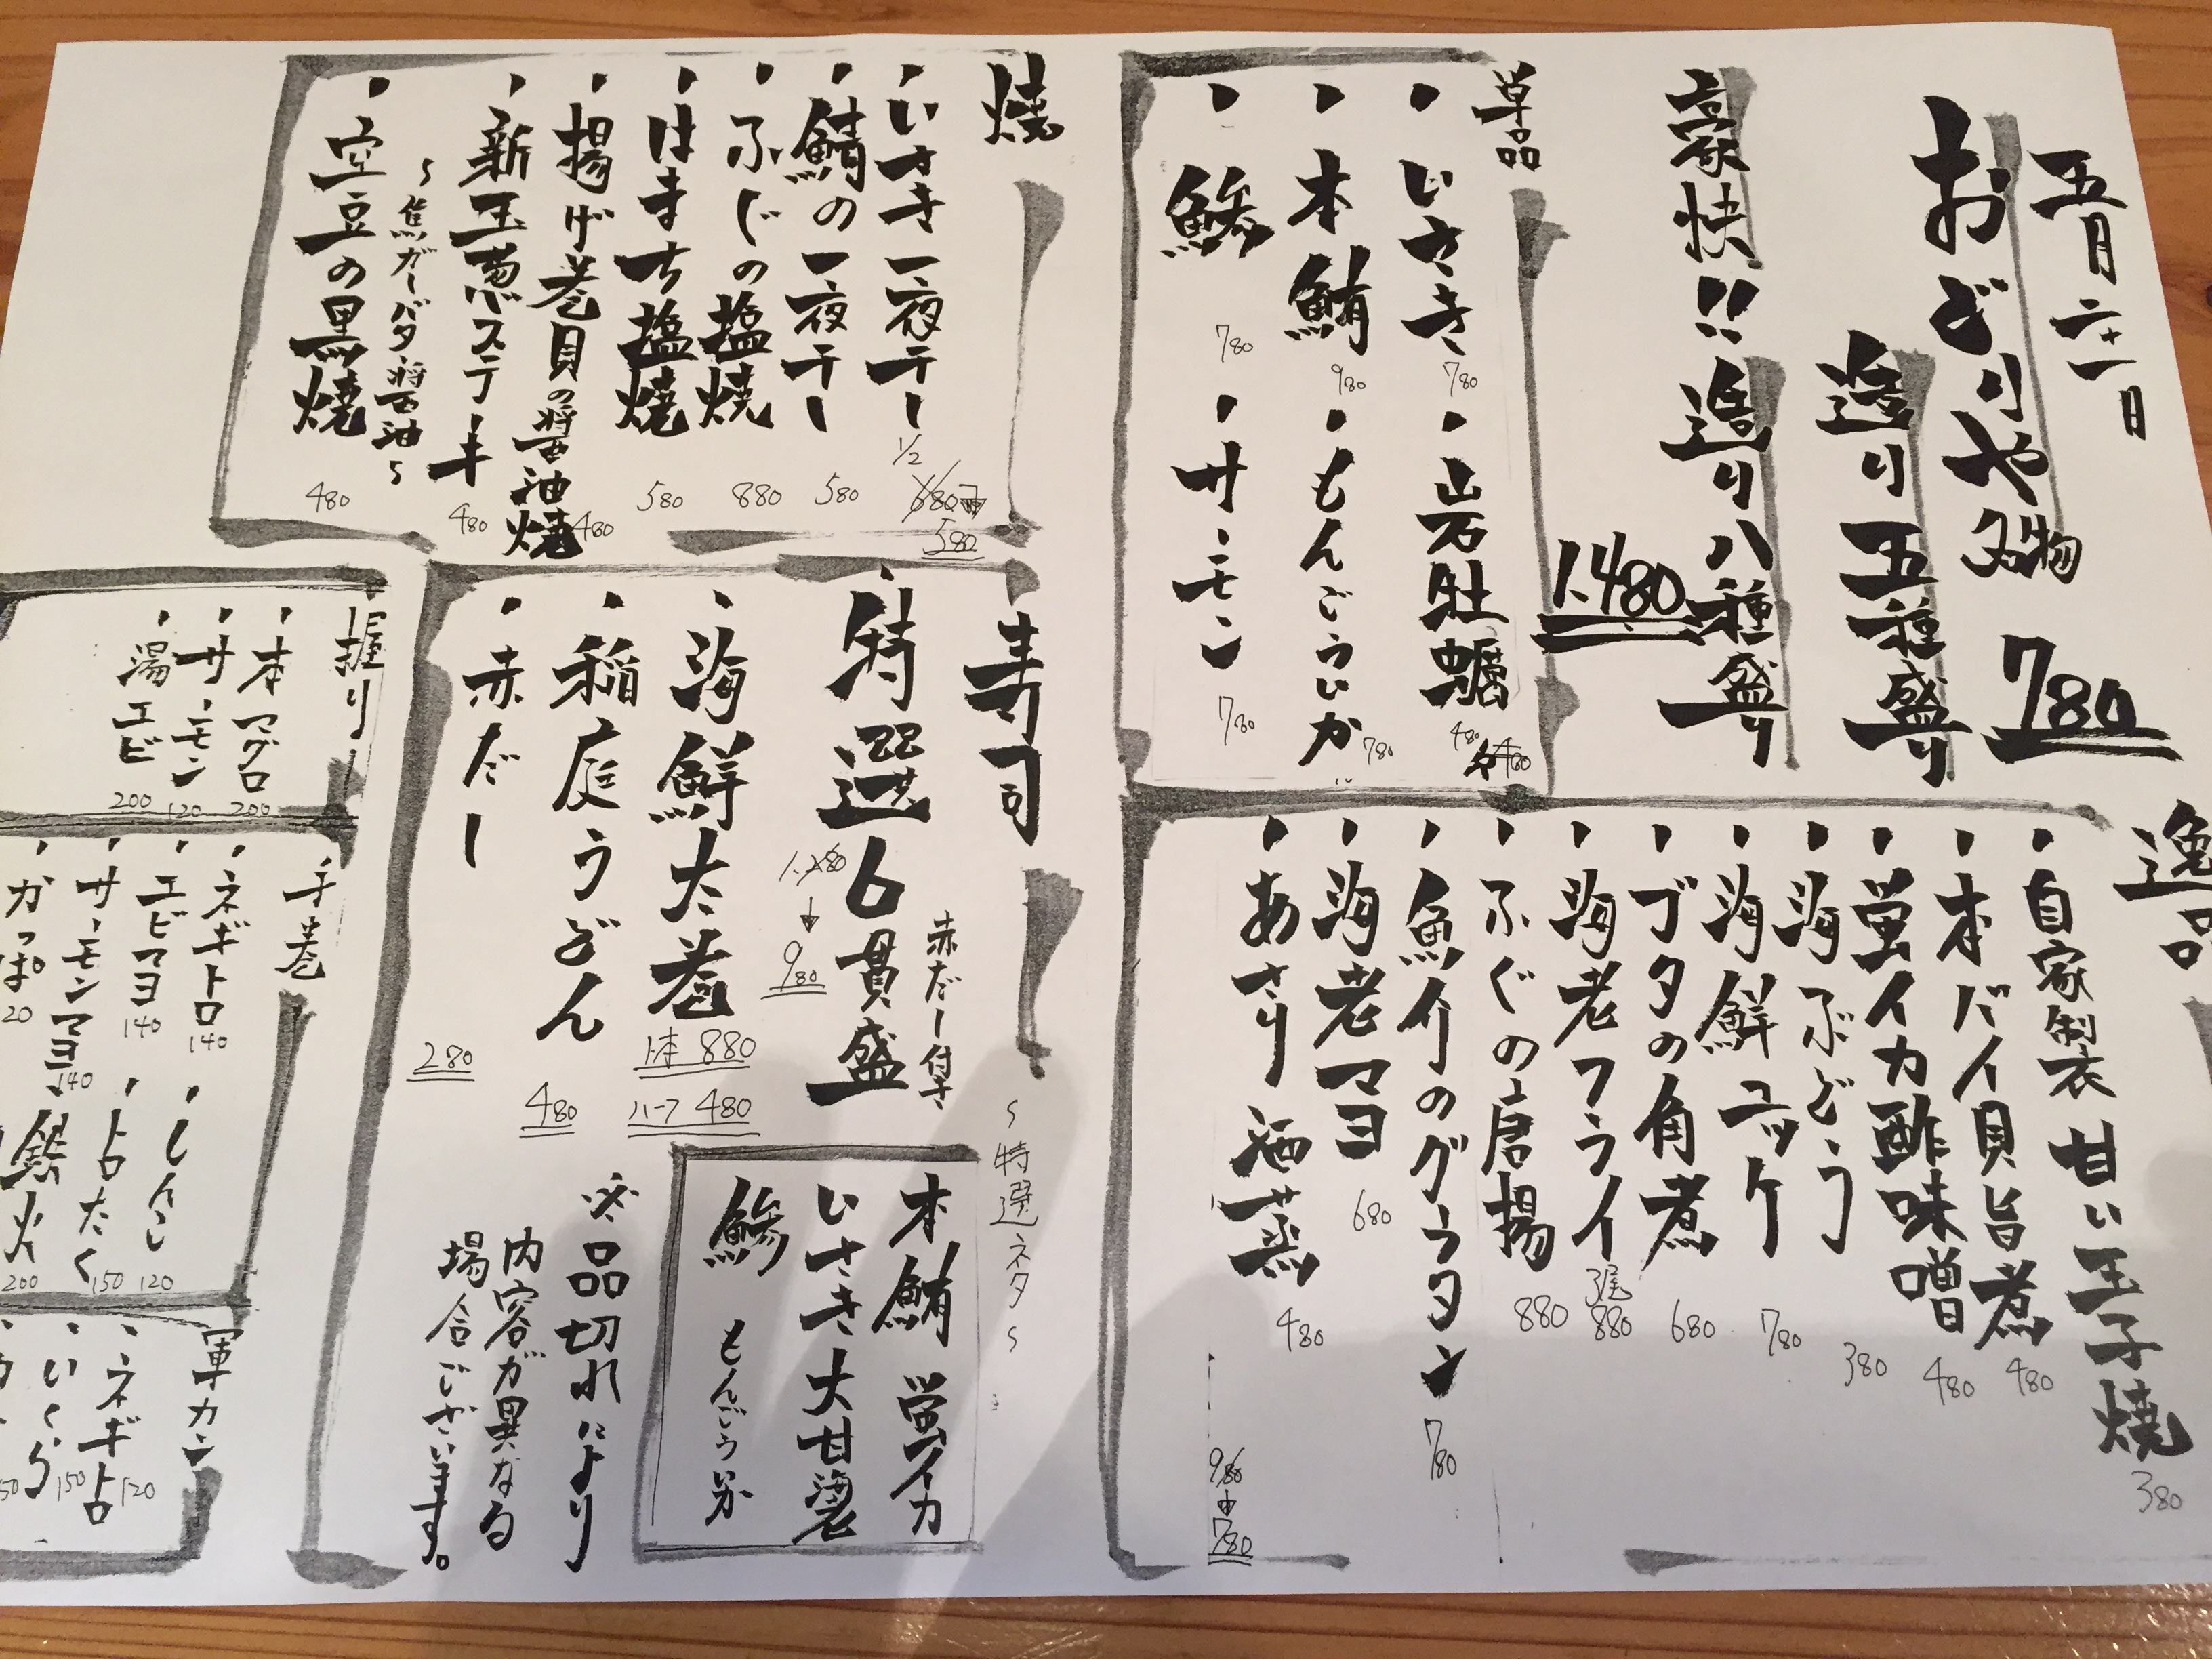 五月二十一日
おどりや名物
造り五種盛り
780
豪快!!造り八種盛り
1.480
単品
・いさき
780
・岩牡蠣
480
・本鮪
980
・もんごういか
780
・鯵
780
・サーモン
780
逸品
・自家製 甘い玉子焼
380
・本バイ貝旨煮
480
・蛍イカ酢味噌
480
・海ぶどう
380
・海鮮ユッケ
780
・ブタの角煮
680
・海老フライ
3尾
880
・ふぐの唐揚
880
・魚介のグラタン
780
・海老マヨ
680
・あさり酒蒸
480
980
780
焼
・いさき一夜干し
1/2
680
580
・鯖の一夜干し
580
・ふじの塩焼
880
・はまち塩焼
580
・揚げ巻貝の醤油焼
480
・新玉葱ステーキ
〜焦がしバタ醤油〜
480
・空豆の黒焼
480
寿司
〜特選ネタ〜
・特選6貫盛
赤だし付き
980
・海鮮太巻
1本 880
ハーフ 480
・稲庭うどん
480
・赤だし
280
本鮪 蛍イカ
いさき 大甘海老
鯵 もんごういか
※品切れにより
内容が異なる
場合ございます。
握り
・本マグロ
200
・サーモン
120
・湯エビ
200
手巻
・ネギトロ
140
・エビマヨ
140
・サーモンマヨ
140
・かっぱ
20
・しんこ
120
・トロたく
150
鉄火
200
軍カン
・ネギトロ
120
・いくら
150
50